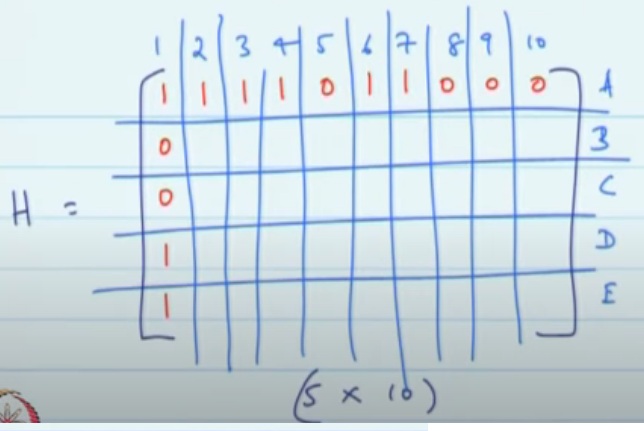 1 2 3 4 5 6 7 8 9 10
1 1 1 1 0 1 1 0 0 0 A
0 B
H = 0 C
1 D
1 E
(5 x 10)